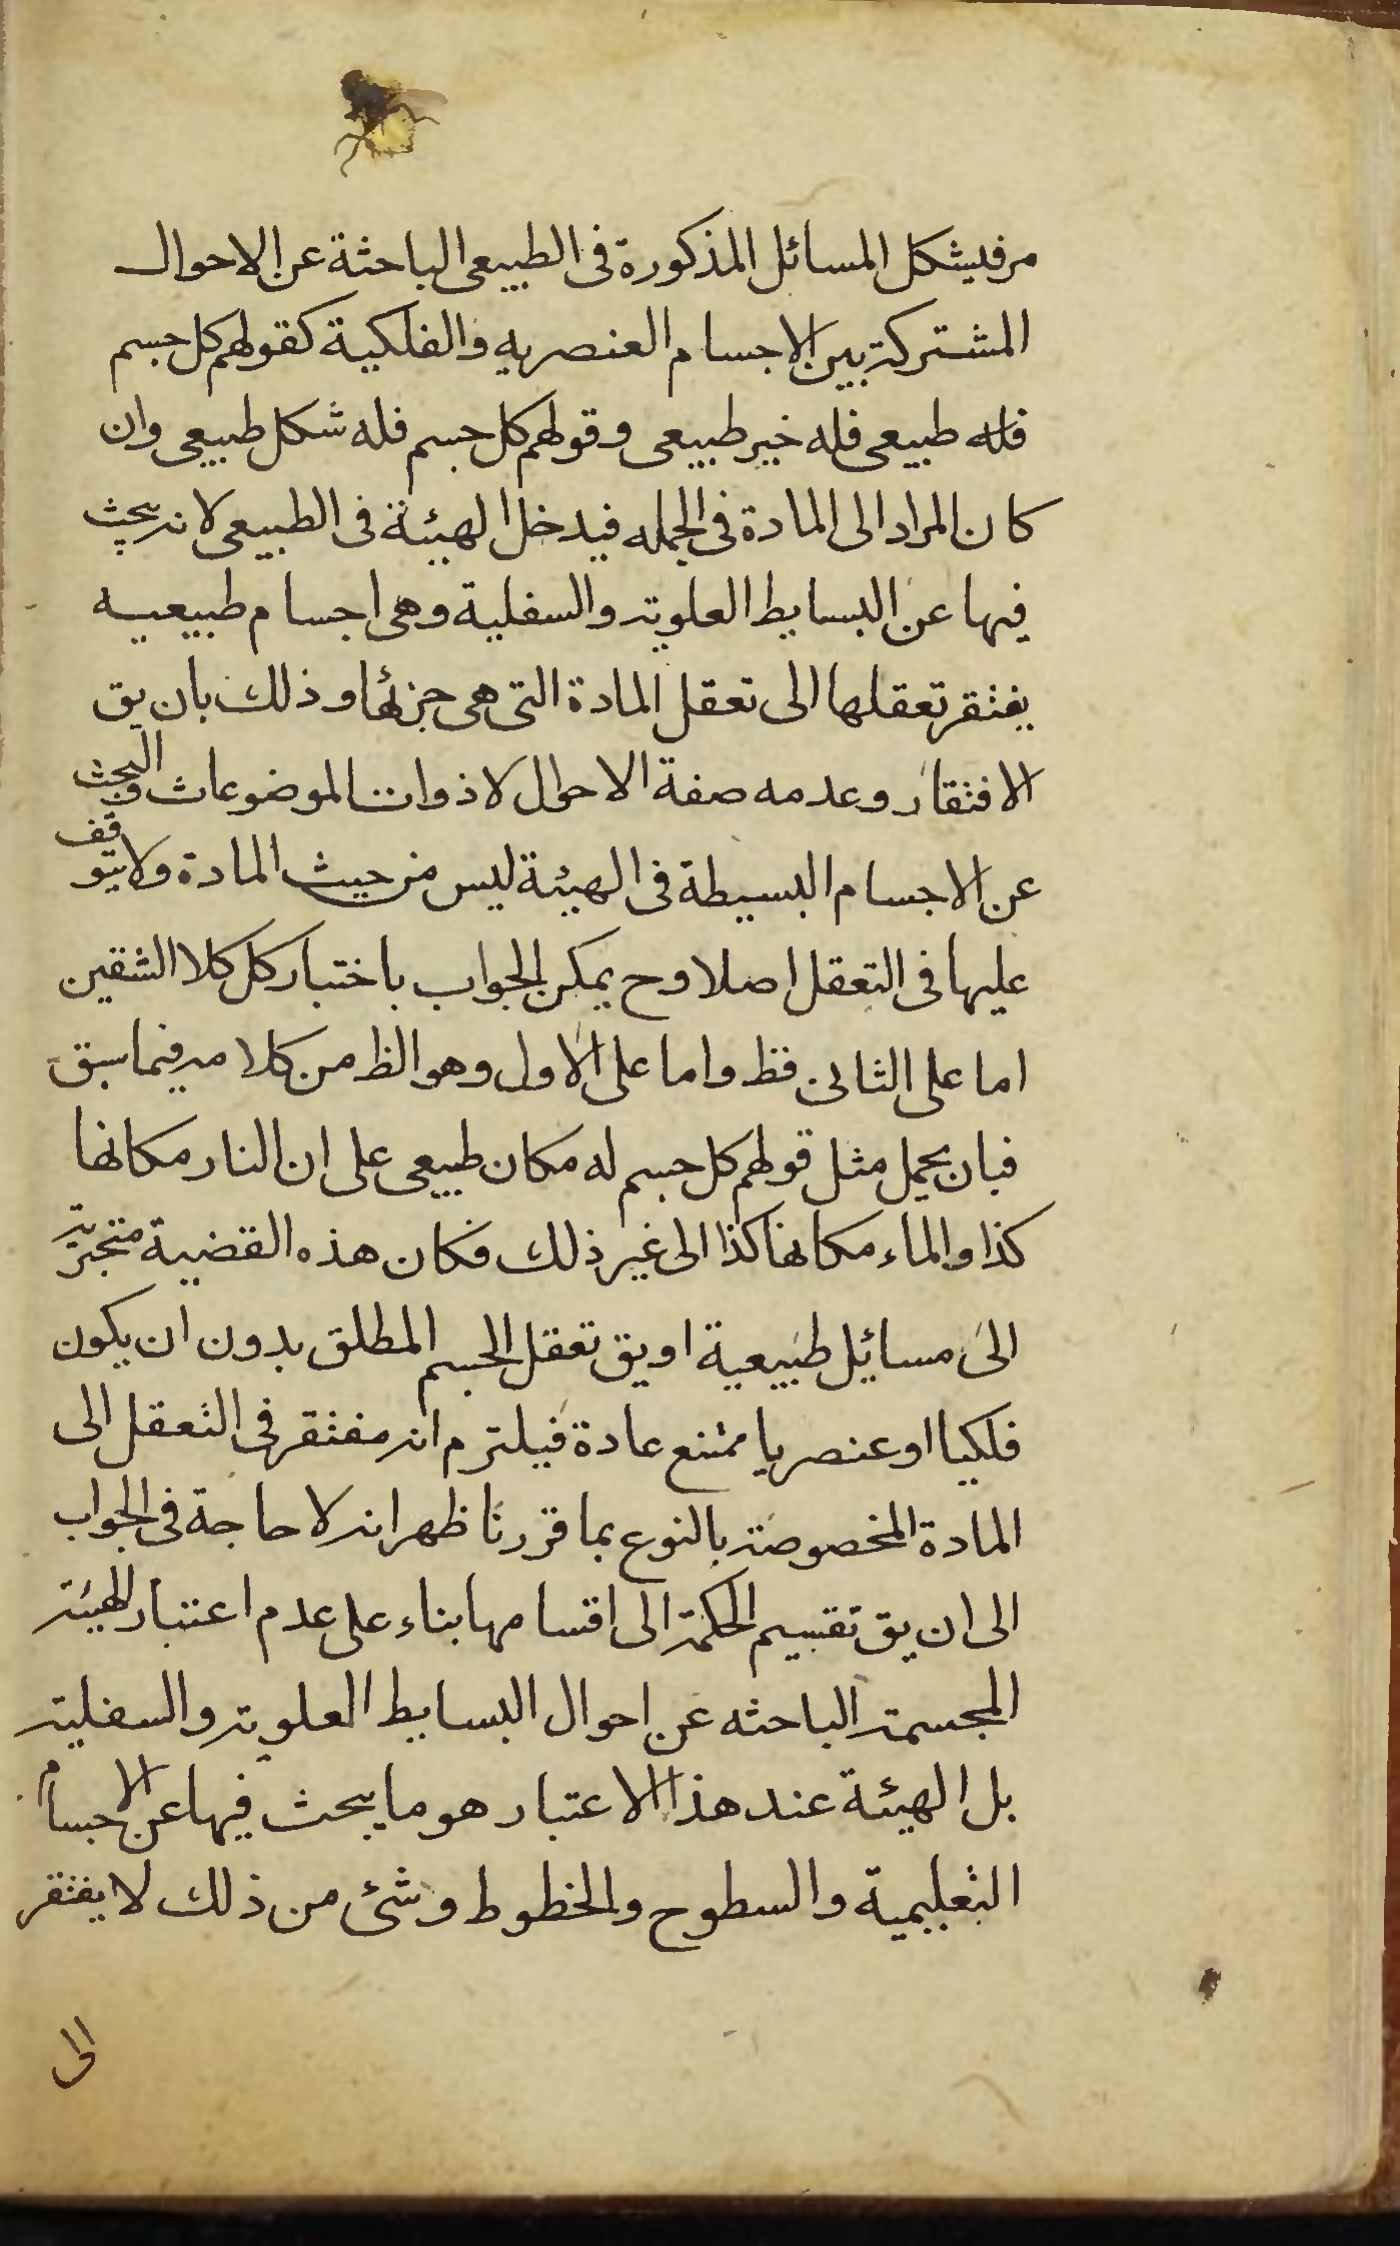 مر فيشكل المسائل المذكورة فى الطبيعى الباحثة عن الاحوال
المشتركة بين الاجسام العنصريه والفلكية كقولهم كل جسم
فله طبيعى فله خير طبيعى وقولهم كل جسم فله شكل طبيعى وان
كان المراد الى المادة فى الجمله فيدخل الهيئة فى الطبيعى لانه يبحث
فيها عن البسايط العلويه والسفلية وهى اجسام طبيعيه
يفتقر تعقلها الى تعقل المادة التى هى جزئها وذلك بان يق
الافتقار وعدمه صفة الاحوال لا ذوات الموضوعات والبحث
عن الاجسام البسيطة فى الهيئة ليس من حيث المادة ولا يتوقف
عليها فى التعقل اصلا وح يمكن الجواب باختبار كل كلا الشقين
اما على الثانى فظ واما على الاول وهو الظ من كلامه فيما سبق
فبان يحمل مثل قولهم كل جسم له مكان طبيعى على ان النار مكانها
كذا والماء مكانها كذا الى غير ذلك فكان هذه القضية متجزية
الى مسائيل طبيعية او يق تعقل الجسم المطلق بدون ان يكون
فلكيا او عنصريا ممتنع عادة فيلتزم انه مفتقر فى التعقل الى
المادة المخصوصة بالنوع بما قررنا ظهر انه لا حاجة فى الجواب
الى ان يق تقسيم الحكمة الى اقسامها بناء على عدم اعتبار الهيئة
المجسمة الباحثه عن احوال البسايط العلوية والسفلية
بل الهيئة عند هذا الاعتبار هو ما يبحث فيها عن الاجسام
التعليمية والسطوح والخطوط وشئ من ذلك لا يفتقر
الى